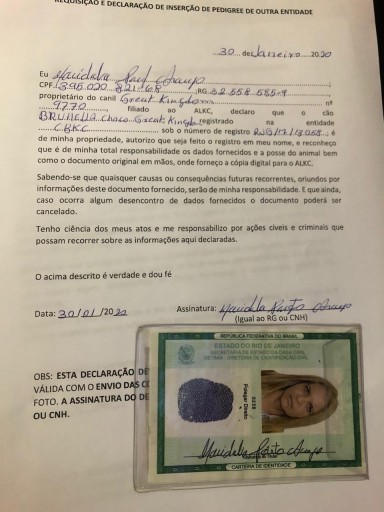 REQUISIÇÃO E DECLARAÇÃO DE INSERÇÃO DE PEDIGREE DE OUTRA ENTIDADE
30 de Janeiro 2020
Eu
CPF RG
proprietário do canil Great Kingdom nº
9770, filiado ao ALKC, declaro que o cão
BRUNELLA Choco Great Kingdom registrado na entidade
CBKC sob o número de registro ; é
de minha propriedade, autorizo que seja feito o registro em meu nome, e reconheço
que é de minha total responsabilidade os dados fornecidos e a posse do animal bem
como o documento original em mãos, onde forneço a cópia digital para o ALKC.
Sabendo-se que quaisquer causas ou consequências futuras recorrentes, oriundos por
informações deste documento fornecido, serão de minha responsabilidade. E que ainda,
caso ocorra algum desencontro de dados fornecidos o documento poderá ser
cancelado.
Tenho ciência dos meus atos e me responsabilizo por ações cíveis e criminais que
possam recorrer sobre as informações aqui declaradas.
O acima descrito é verdade e dou fé
Data: 30/01/2020 Assinatura:
(Igual ao RG ou CNH)
OBS: ESTA DECLARAÇÃO DE
VÁLIDA COM O ENVIO DAS
FOTO. A ASSINATURA DO DE
OU CNH.
REPÚBLICA FEDERATIVA DO BRASIL
ESTADO DO RIO DE JANEIRO
SECRETARIA DE ESTADO DA CASA CIVIL
Polegar Direito
CARTEIRA DE IDENTIDADE